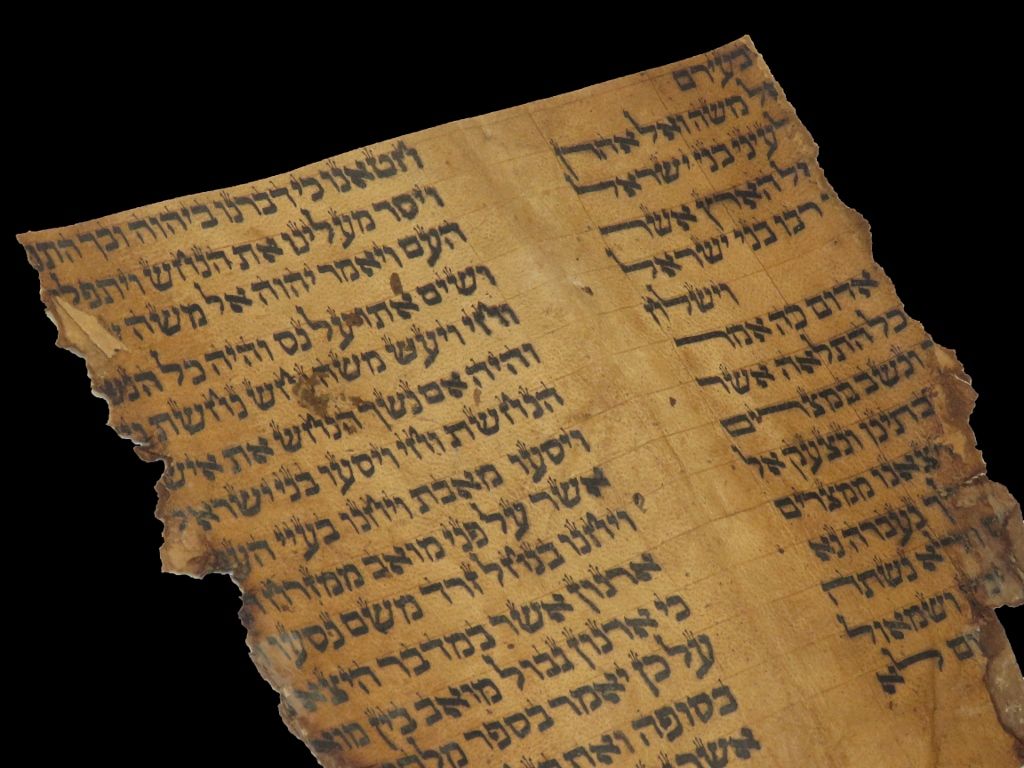 בעירם
משה ואל אהרן
לעיני בני ישראל
הארץ אשר
רבו בני ישראל
וישלח
אדום כה אמר
כל התלאה אשר
ונשב במצרים
ונצעק אל
ויצאנו ממצרים
נעברה נא
נשתה
ושמאול
לא
חטאנו כי דברנו ביהוה ובך
ויסר מעלינו את הנחש
העם ויאמר יהוה אל משה
ושים אתו על נס והיה כל
וחי ויעש משה נחש נחשת
והיה אם נשך הנחש את איש
הנחשת וחי ויסעו בני ישראל
ויסעו מאבת ויחנו בעיי
אשר על פני מואב ממזרח
ויחנו בנחל זרד משם נסעו
ארנון אשר במדבר היצא
כי ארנון גבול מואב בין
על כן יאמר בספר
בסופה ואת
אשר